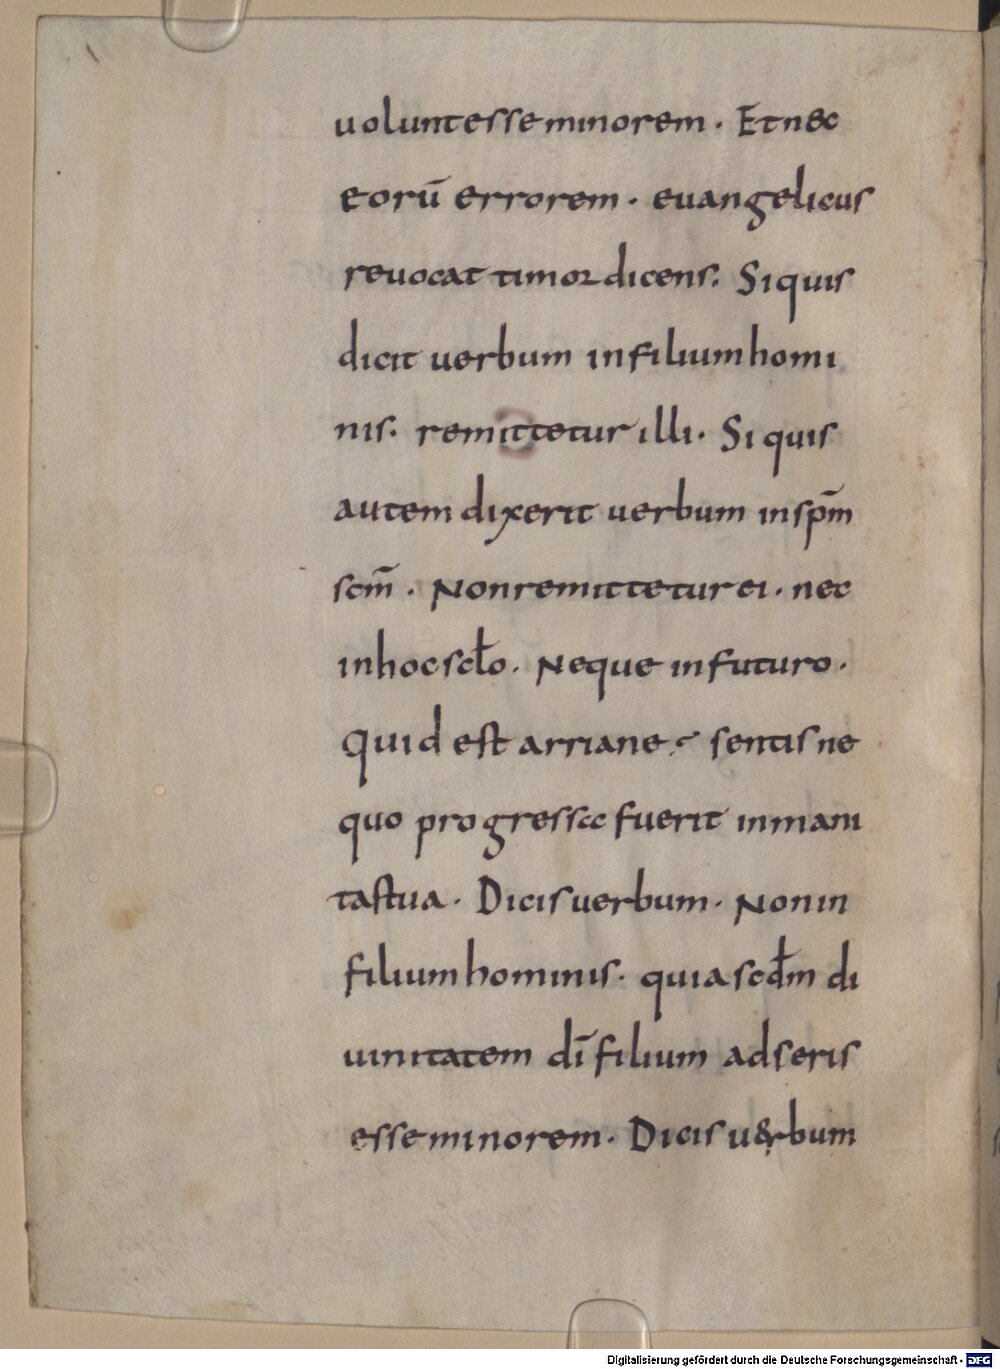 uoluntesseminorem · Et nec
eorū errorem · euangelicus
reuocat timor dicens. Siquis
dicit uerbum infiliumhomi
nis. remittetur illi. Si quis
autem dixerit uerbum inspm̄
scm̄ . Nonremittetur ei . nec
inhocsclo . Neque infuturo .
Quid est arriane ? sentisne
quo progressa fuerit inmani
tastua . Dicis uerbum . Nonin
filiumhominis . quiascdm di
uinitatem dī filium adseris
esseminorem . Dicis uerbum
Digitalisierung gefördert durch die Deutsche Forschungsgemeinschaft - DFG